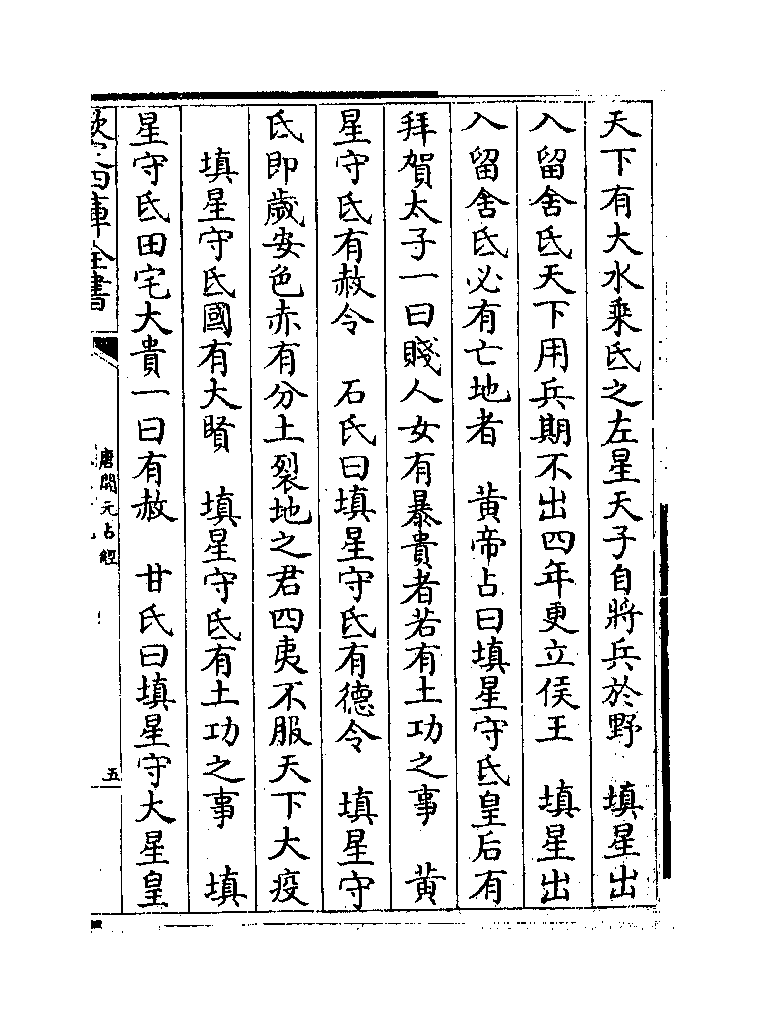 天下有大水乘氐之左星天子自將兵於野　填星出
入留舍氐天下用兵期不出四年更立侯王　填星出
入留舍氐必有亡地者　黄帝占曰填星守氐皇后有
拜賀太子一曰賤人女有暴貴者若有土功之事　黄
星守氐有赦令　石氏曰填星守氐有德令　填星守
氐即歲安色赤有分土裂地之君四夷不服天下大疫
填星守氐國有大賢　填星守氐有土功之事　填
星守氐田宅大貴一曰有赦　甘氏曰填星守大星皇
欽定四庫全書
唐開元占經
五